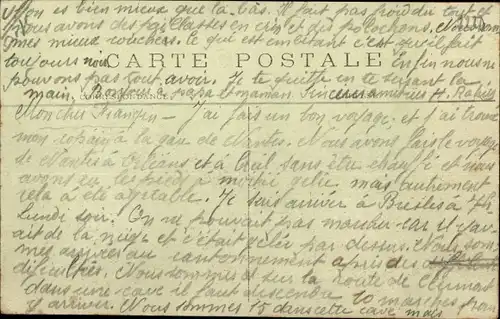 bien mieux que la bas. Il fait pas froid du tout et
nous avons des paillasses en crin et des polochons. Nous som
mes mieux couchers. Ce qui est embêtant c'est qu'il fait
toujours noir
CARTE POSTALE
Enfin nous ne
pouvons pas tout avoir. Je te quitte en te serrant la
main. Bonjour à papa et maman Sincères amitiés H.
Mon cher François – J'ai fais un bon voyage, et j'ai trouvé
mon copain à la gare de Nantes. Nous avons fais le voyage
de Nantes à Orléans et à Creil sans être chauffé et nous
avons eu les pieds à moitié gelée, mais autrement
cela a été agréable. Je suis arriver à Bresles à 7h
lundi soir. On ne pouvait pas marcher car il y av
ait de la neige et c'était gelée par dessus. Nous som
mes arrivés au cantonnement après des
dificultés. Nous sommes sur la route de
dans une cave il faut descendre 10 marches pour
y arriver. Nous sommes 15 dans cette cave mais